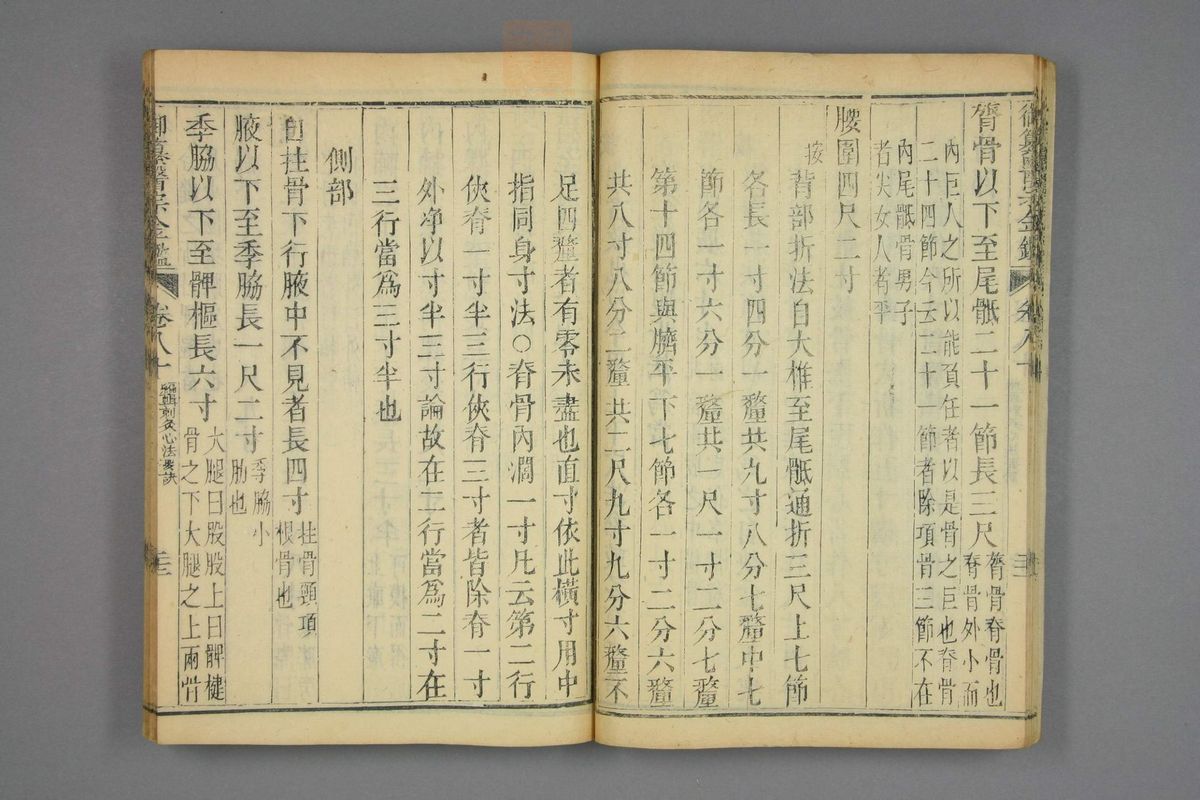 御纂醫宗金鑑 卷八十
膂骨以下至尾骶二十一節長三尺 膂骨脊骨也
脊骨外小而
內巨人之所以能頂任者以是骨之巨也脊骨
二十四節今云二十一節者除項骨三節不在
內尾骶骨男子
者尖女人者平
腰圍四尺二寸
按背部折法自大椎至尾骶通折三尺上七節
各長一寸四分一釐共九寸八分七釐中七
節各一寸六分一釐共一尺一寸二分七釐
第十四節與臍平下七節各一寸二分六釐
共八寸八分二釐共二尺九寸九分六釐不
足四釐者有零未盡也直寸依此橫寸用中
指同身寸法○脊骨內濶一寸凡云第二行
俠脊一寸半三行俠脊三寸者皆除脊一寸
外净以寸半三寸論故在二行當爲二寸在
三行當爲三寸半也
側部
自拄骨下行腋中不見者長四寸 拄骨頸項
根骨也
腋以下至季脇長一尺二寸 季脇小
肋也
季脇以下至髀樞長六寸 大腿曰股股上曰髀楗
骨之下大腿之上兩骨
御纂醫宗金鑑 卷八十 編輯刺灸心法要訣